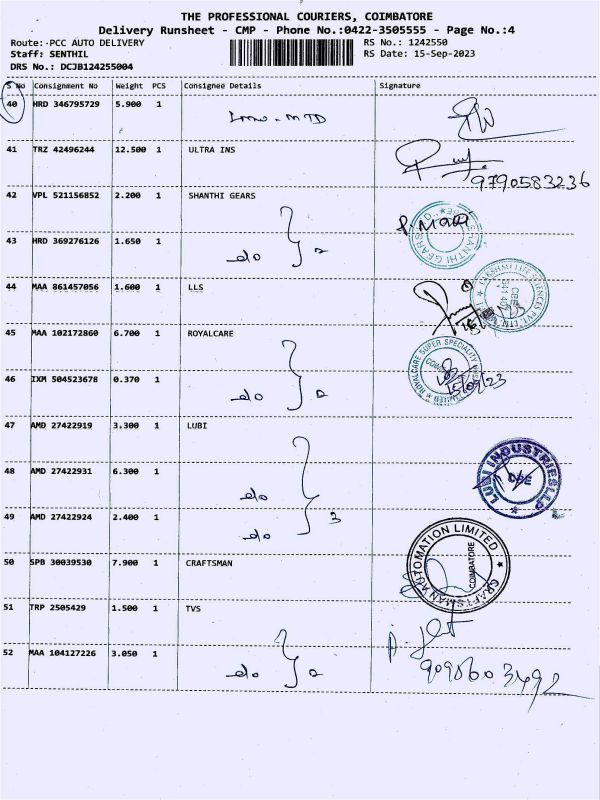 THE PROFESSIONAL COURIERS, COIMBATORE
Delivery Runsheet - CMP - Phone No.:0422-3505555 - Page No.:4
Route: PCC AUTO DELIVERY RS No.: 1242550
Staff: SENTHIL RS Date: 15-Sep-2023
DRS No.: DCJB124255004
S No Consignment No Weight PCS Consignee Details Signature
40 HRD 346795729 5.900 1
41 TRZ 42496244 12.500 1 ULTRA INS
9790583236
42 VPL 521156852 2.200 1 SHANTHI GEARS
43 HRD 369276126 1.650 1 do 2
44 MAA 861457056 1.600 1 LLS
45 MAA 102172860 6.700 1 ROYALCARE
46 IXM 504523678 0.370 1 do 2
15/09/23
47 AMD 27422919 3.300 1 LUBI
48 AMD 27422931 6.300 1 do
LUBI INDUSTRIES LLP
CBE
49 AMD 27422924 2.400 1 do 3
50 SPB 30039530 7.900 1 CRAFTSMAN
CRAFTSMAN AUTOMATION LIMITED
COIMBATORE
51 TRP 2505429 1.500 1 TVS
52 MAA 104127226 3.050 1 do 2